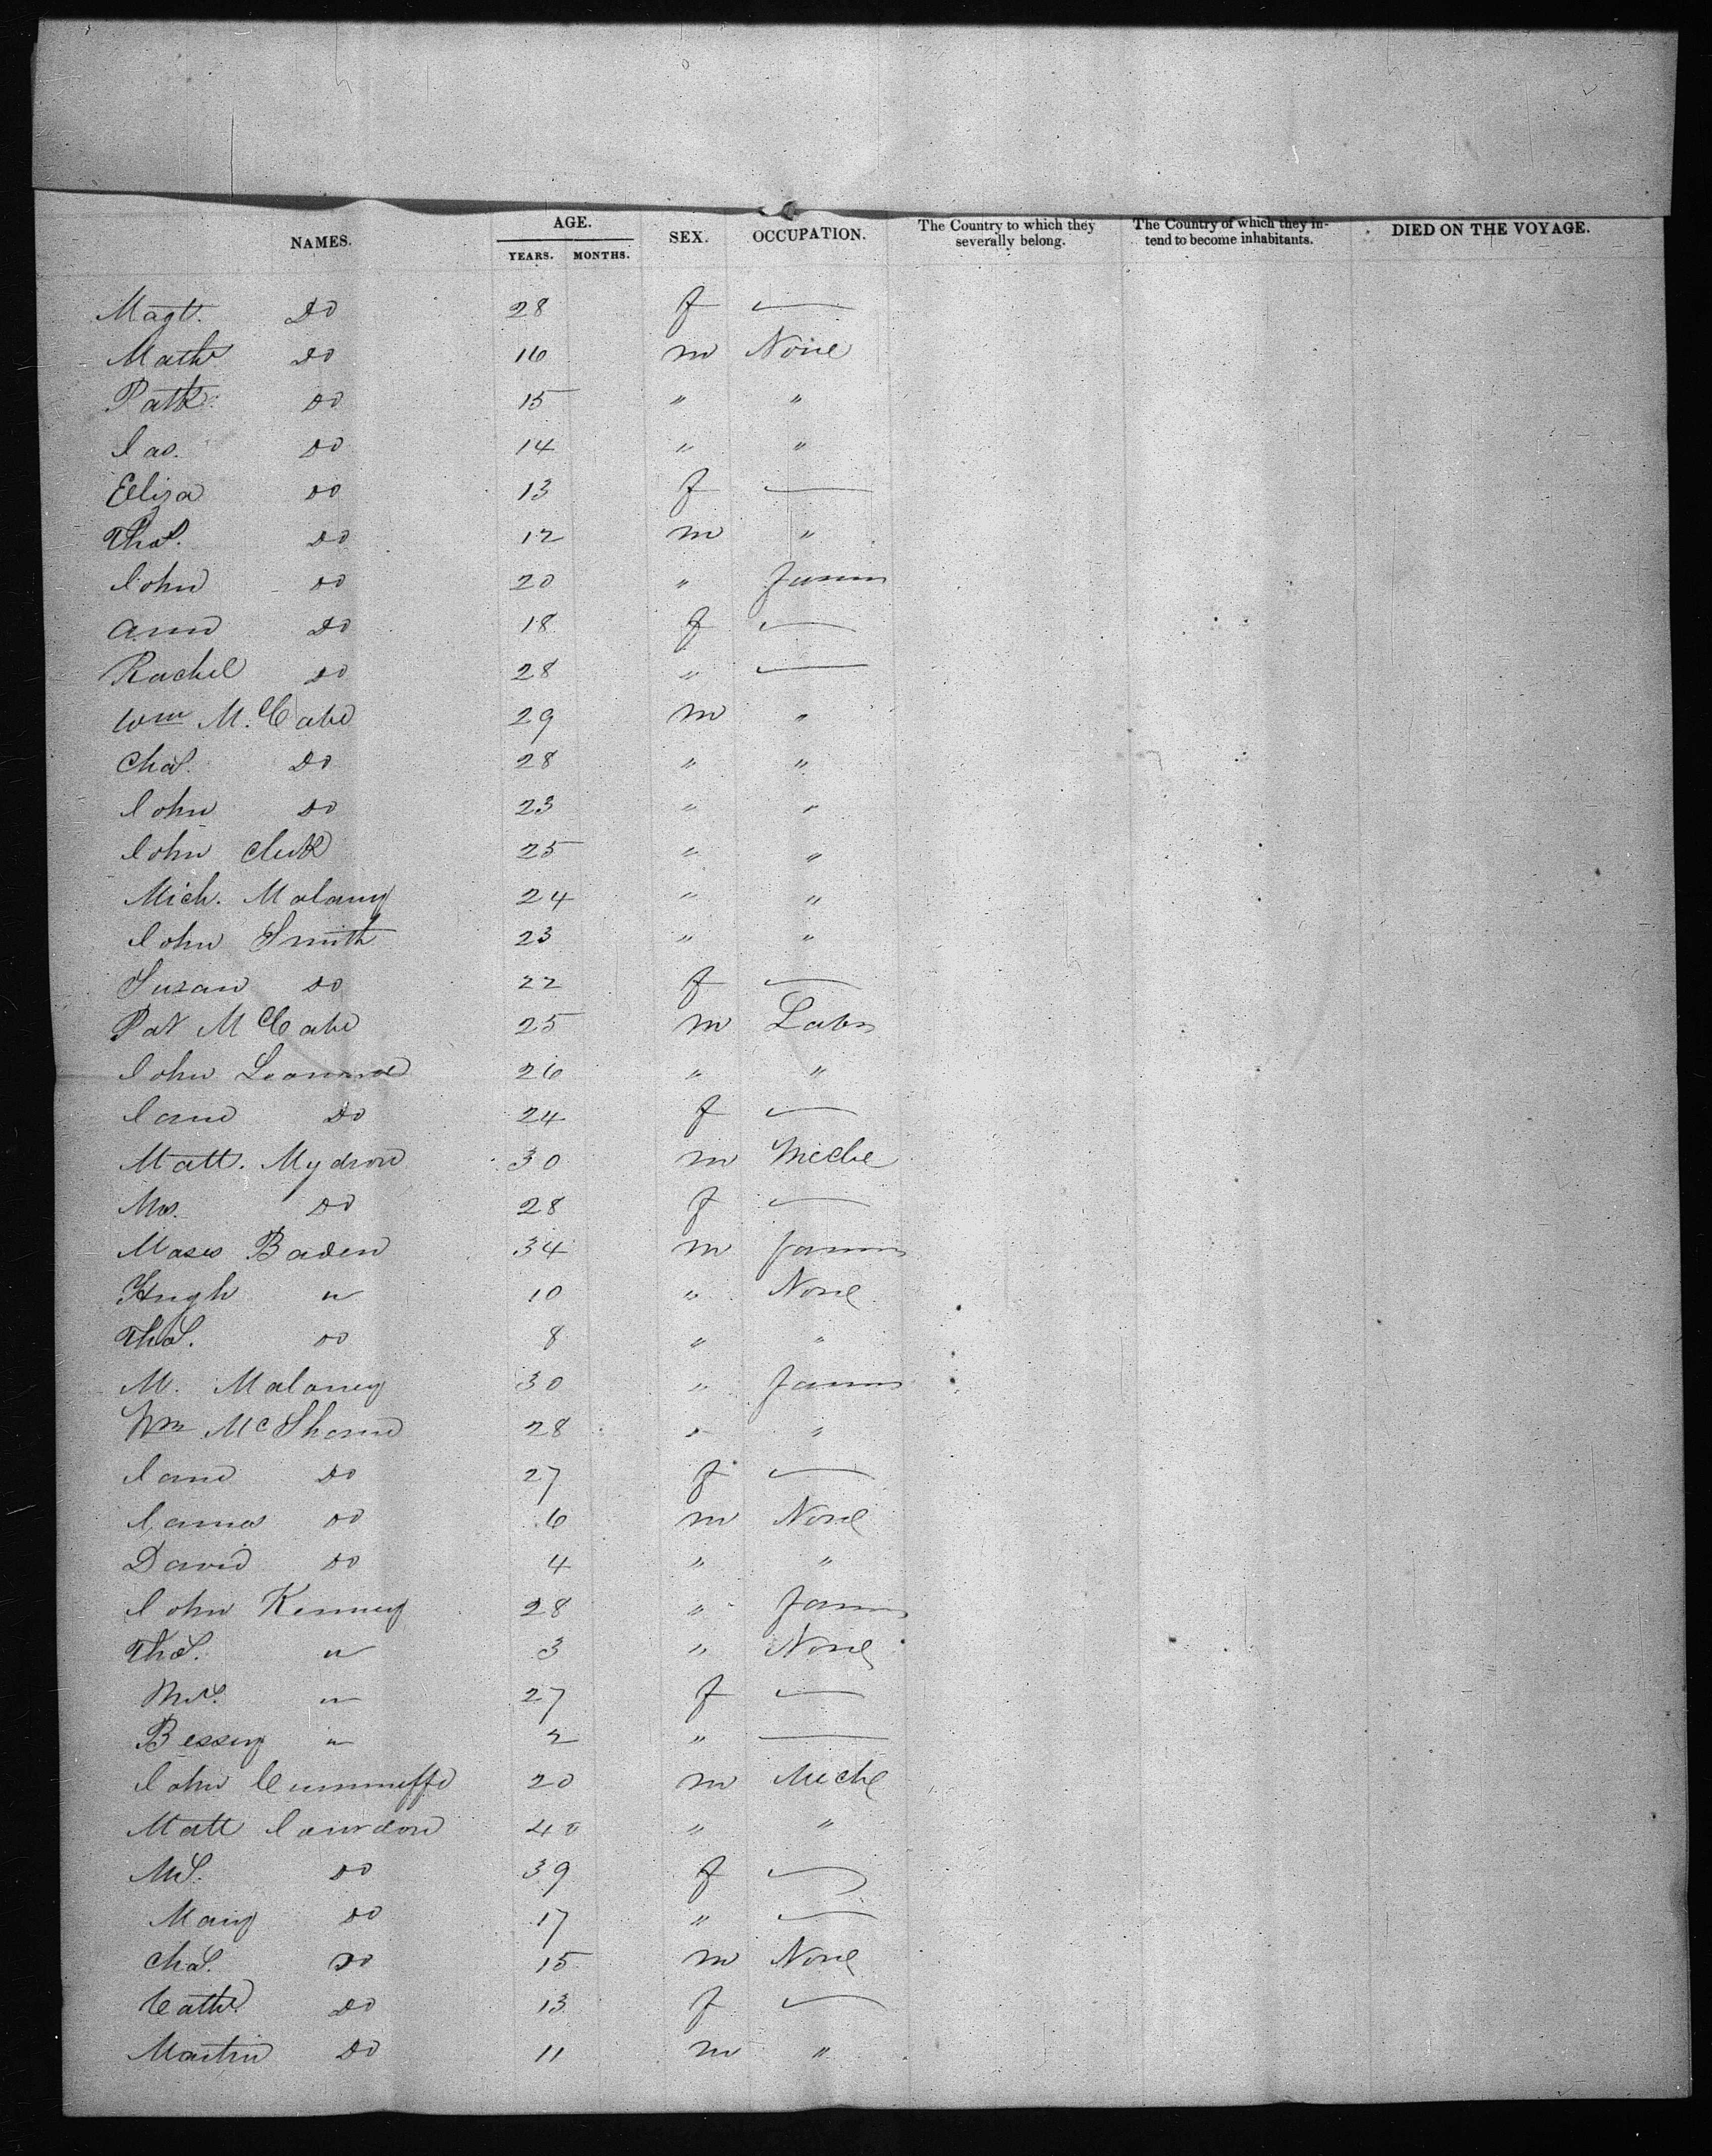 NAMES. AGE. SEX. OCCUPATION. The Country to which they severally belong. The Country of which they intend to become inhabitants. DIED ON THE VOYAGE.
YEARS. MONTHS.
Magt. Do 28 f —
Math Do 16 m None
Patk. Do 15 " "
Jas. Do 14 " "
Eliza Do 13 f —
Thos. Do 12 m "
John Do 20 " Farmr
Ann Do 18 f —
Rachel Do 28 " —
Wm McCabe 29 m "
Chas. Do 28 " "
John Do 23 " "
John 25 " "
Mich. Malony 24 " "
John Smith 23 " "
Susan Do 22 f —
Pat McCabe 25 m Labr
John 26 " "
Jane Do 24 f —
Matt. Mydron 30 m Meche
Mrs. Do 28 f —
Moses Baden 34 m Farmr
Hugh " 10 " None
Thos. Do 8 " "
M. Maloney 30 " Farmr
Wm McShane 28 " "
Jane Do 27 f —
James Do 6 m None
David Do 4 " "
John Kenney 28 " Farmr
Thos. " 3 " None
Mrs. " 27 f —
Bessey " 2 " —
John 20 m Meche
Matt 40 " "
Mrs. Do 39 f —
Mary Do 17 " —
Chas. Do 15 m None
Cathe Do 13 f —
Martin Do 11 m "